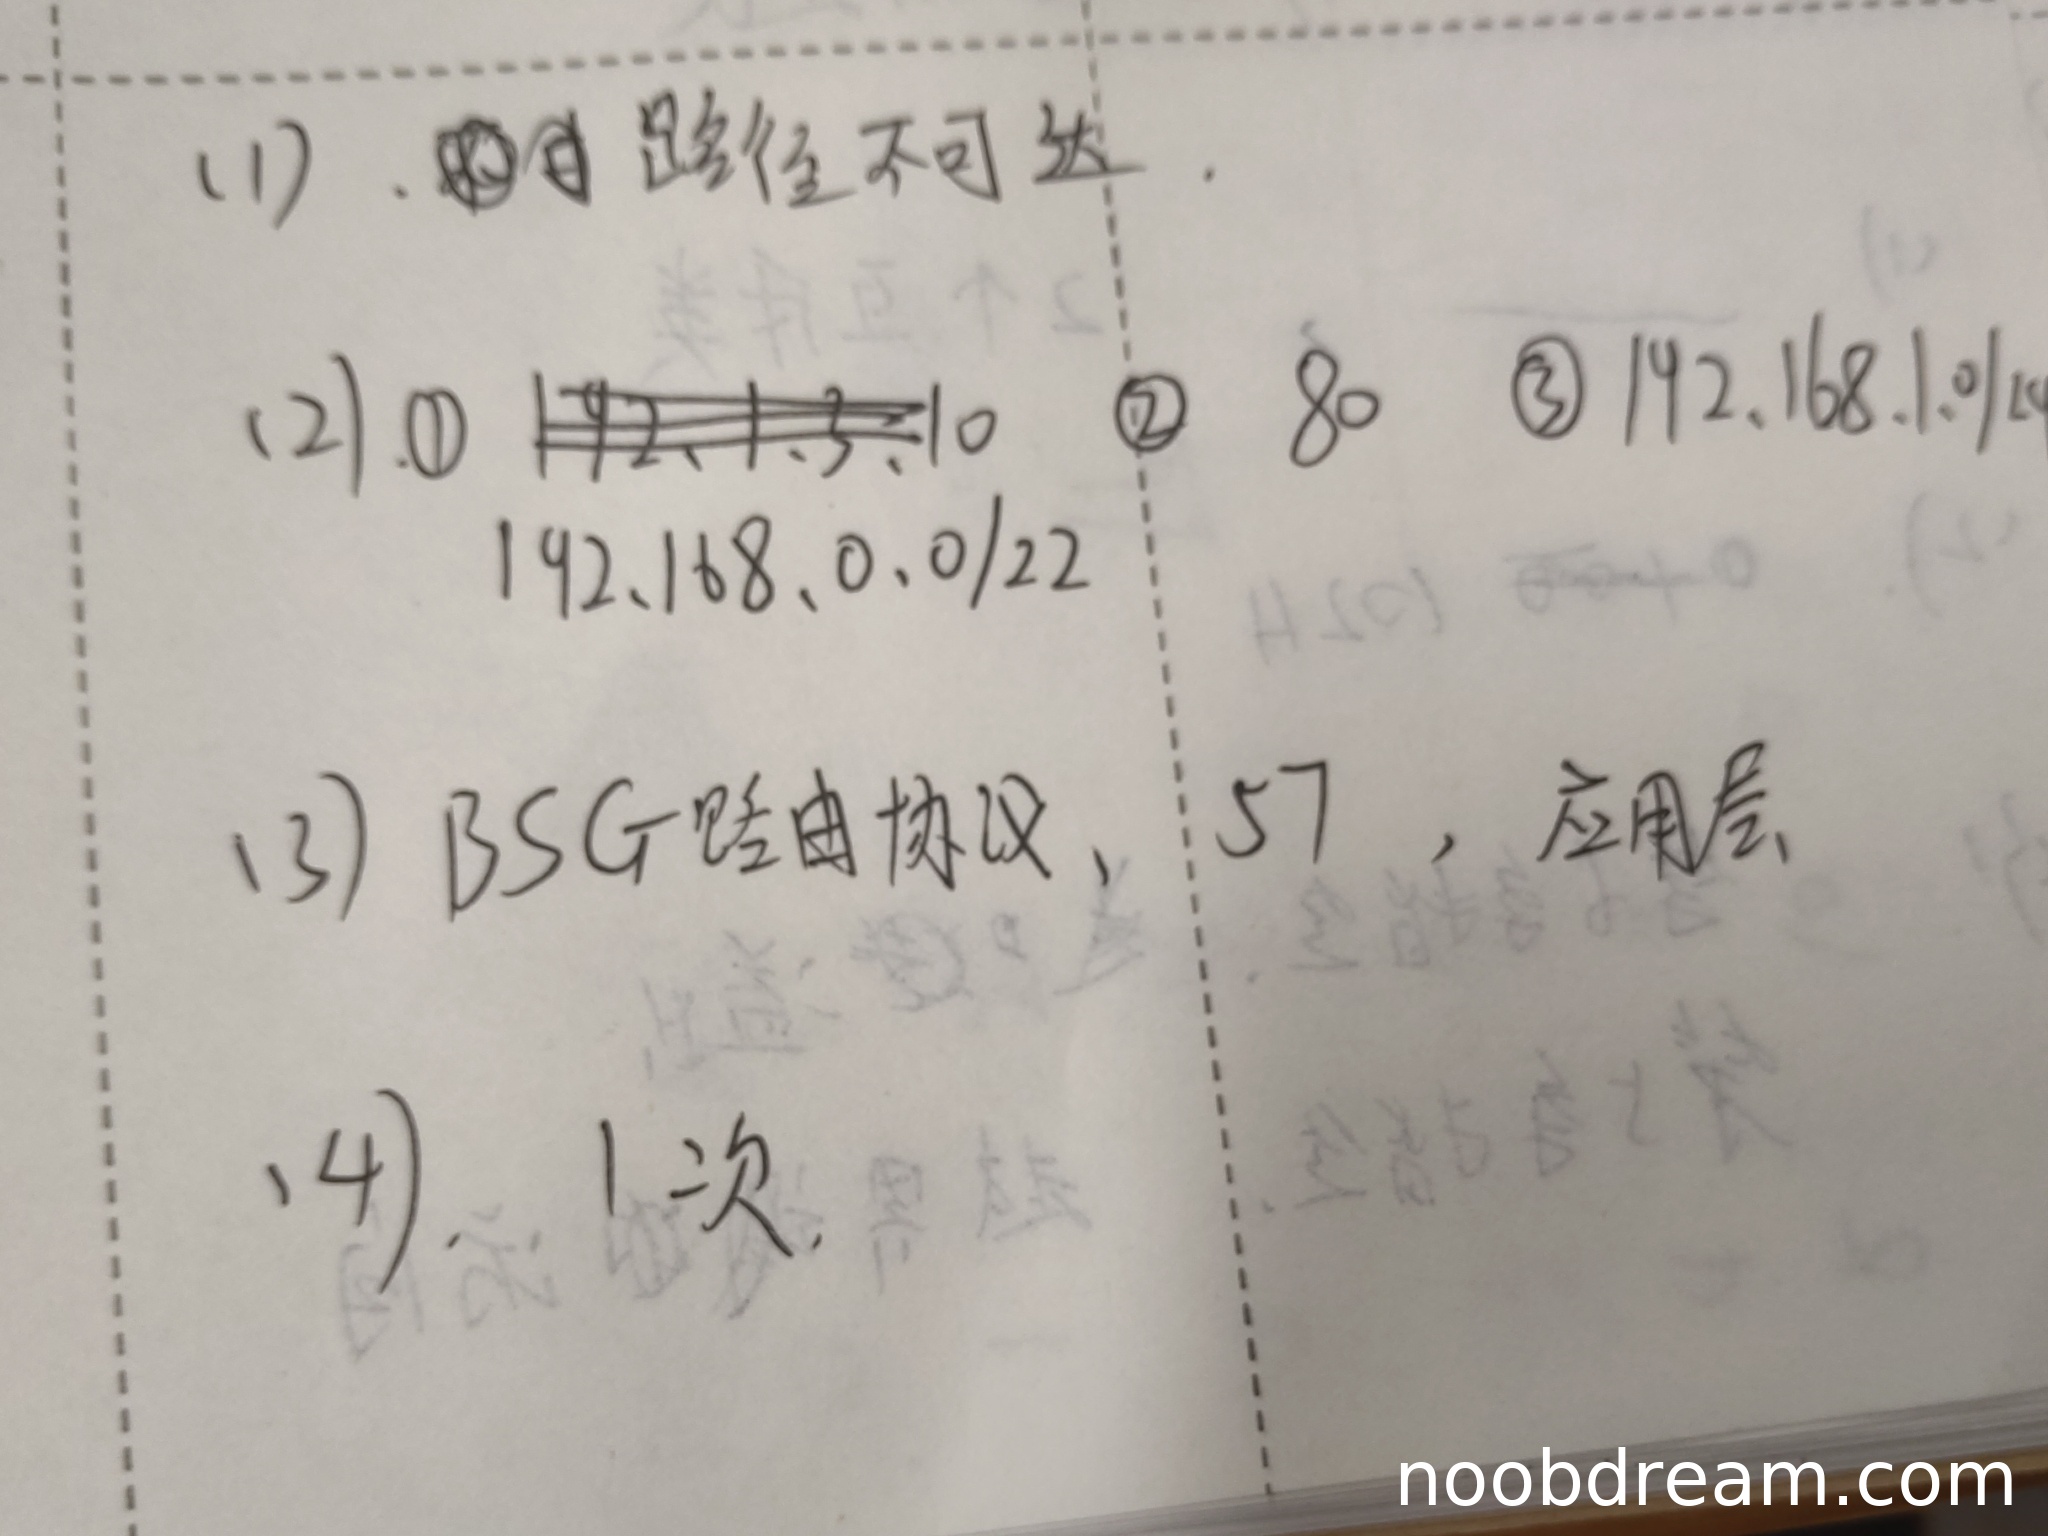 (1). 路径不可达.
(2).① 192.1.3.10 ② 80 ③ 192.168.1.0/24
192.168.0.0/22
(3) BSG路由协议, 57, 应用层
(4). 1次.
noobdream.com